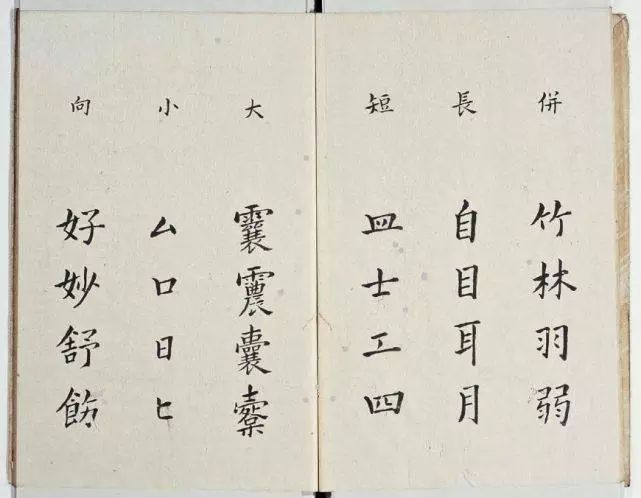 併
竹林羽弱
長
自目耳月
短
皿士工四
大
囊
小
厶口日匕
向
好妙舒飭